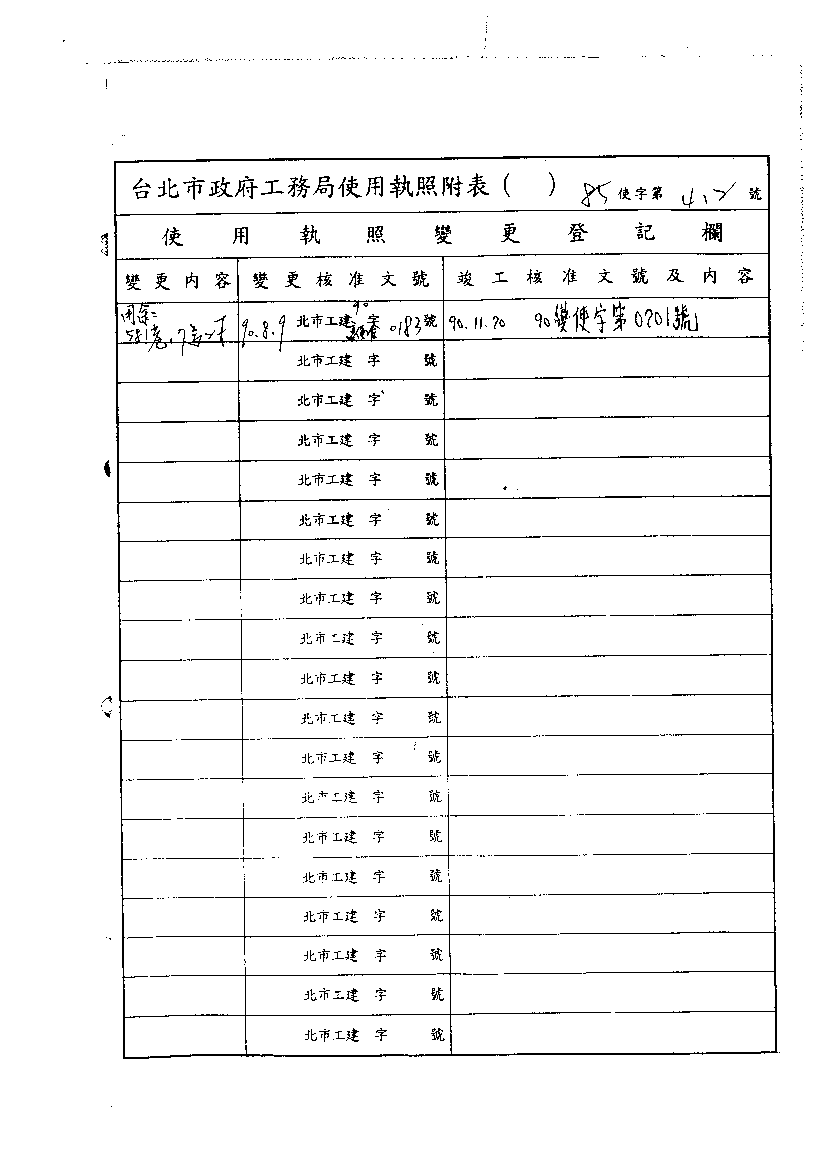 台北市政府工務局使用執照附表( ) 85 使字第 412 號
使用執照變更登記欄
變更內容 變更核准文號 竣工核准文號及內容
用途: 90.8.9 北市工建 90 字 0183 號 90.11.20 90變使字第0201號
北市工建 字 號
北市工建 字 號
北市工建 字 號
北市工建 字 號
北市工建 字 號
北市工建 字 號
北市工建 字 號
北市工建 字 號
北市工建 字 號
北市工建 字 號
北市工建 字 號
北市工建 字 號
北市工建 字 號
北市工建 字 號
北市工建 字 號
北市工建 字 號
北市工建 字 號
北市工建 字 號